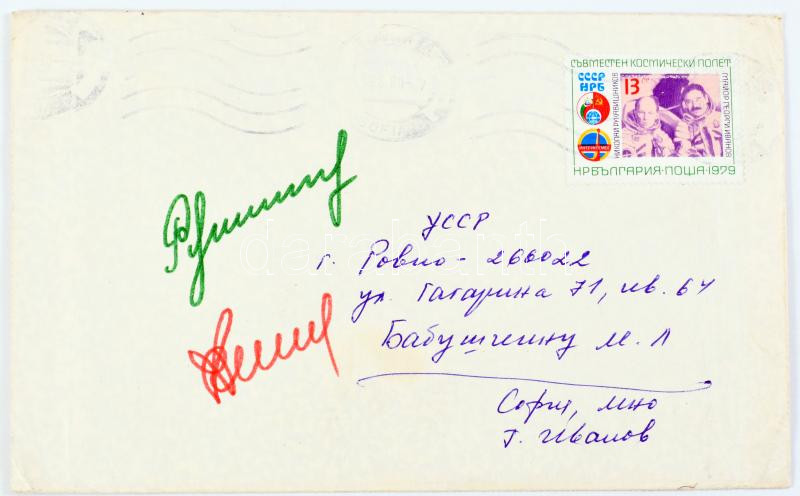 СЪВМЕСТЕН КОСМИЧЕСКИ ПОЛЕТ
СССР
НРБ
13
ИНТЕРКОСМОС
НИКОЛАЙ РУКАВИШНИКОВ
МАЙОР ГЕОРГИ ИВАНОВ
НР БЪЛГАРИЯ · ПОЩА · 1979
УССР
г. Ровно - 266022
ул. Гагарина 71, кв. 64
Бабушкину М. Л
София, МНО
Г. Иванов